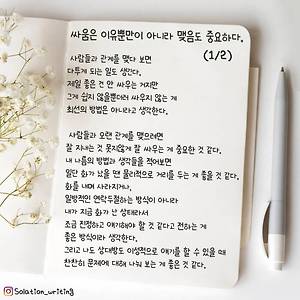 싸움은 이유뿐만이 아니라 맺음도 중요하다.
(1/2)
사람들과 관계를 맺다 보면
다투게 되는 일도 생긴다.
제일 좋은 건 안 싸우는 거지만
그게 쉽지 않을뿐더러 싸우지 않는 게
최선의 방법은 아니라고 생각한다.
사람들과 오랜 관계를 맺으려면
잘 지내는 것 못지않게 잘 싸우는 게 중요한 것 같다.
내 나름의 방법과 생각들을 적어보면
일단 화가 났을 땐 물리적으로 거리를 두는 게 좋을 것 같다.
화를 내며 사라지거나,
일방적인 연락두절하는 방식이 아니라
내가 지금 화가 난 상태라서
조금 진정하고 얘기해야 할 것 같다고 전하는 게
좋은 방식이라 생각한다.
그리고 나도 상대방도 이성적으로 얘기를 할 수 있을 때
찬찬히 문제에 대해 나눠 보는 게 좋은 것 같다.
@Solation_writing